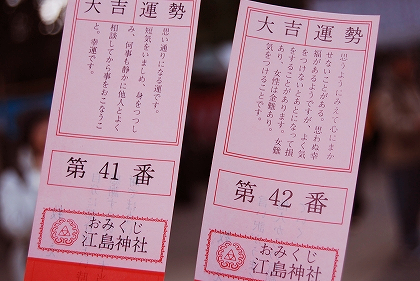 大吉運勢
思い通りになる運です。
短気をいましめ、身をつつし
み、何事も静かに他人とよく
相談してから事をおこなうこ
と。幸運です。
第41番
おみくじ
江島神社
大吉運勢
思うようにみえて心にまか
せないことがある。思わぬ幸
福があるようですが、よく気
をつけないとあとになって損
をすることがあります。女難
あり、女性は金難あり。
気をつけることです。
第42番
おみくじ
江島神社